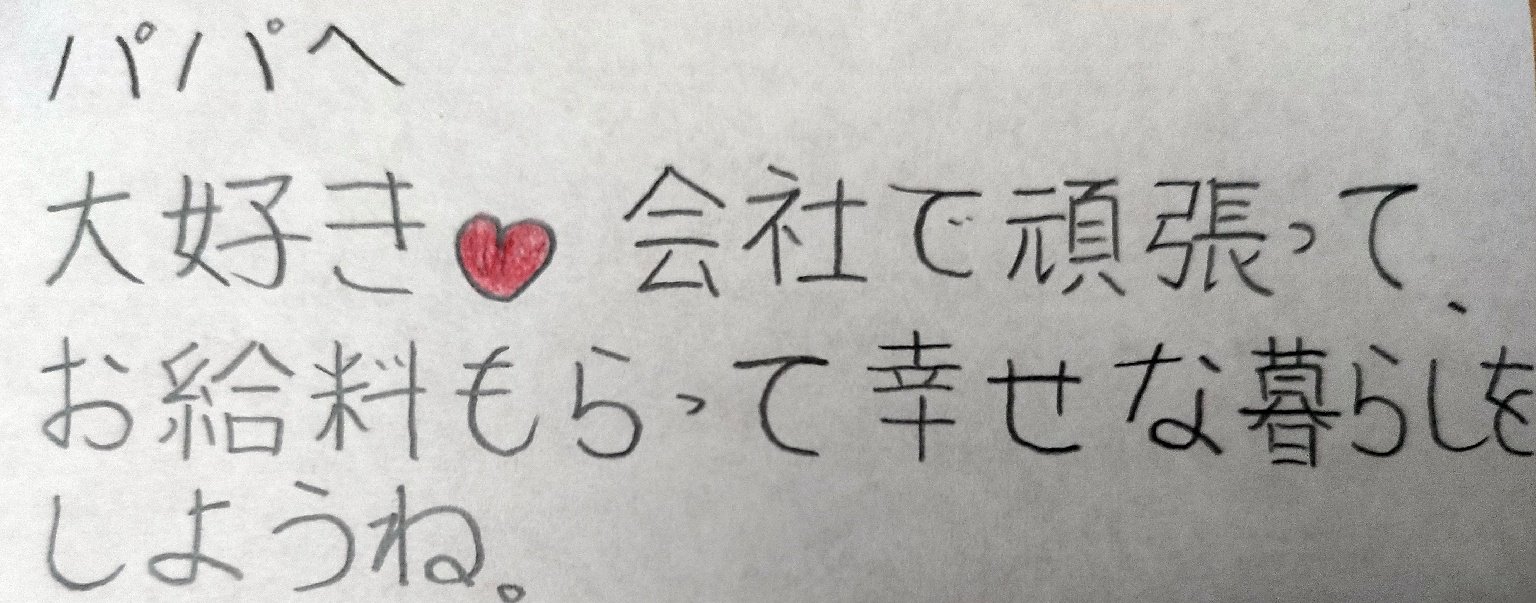 パパへ
大好き❤ 会社で頑張って、
お給料もらって幸せな暮らしを
しようね。